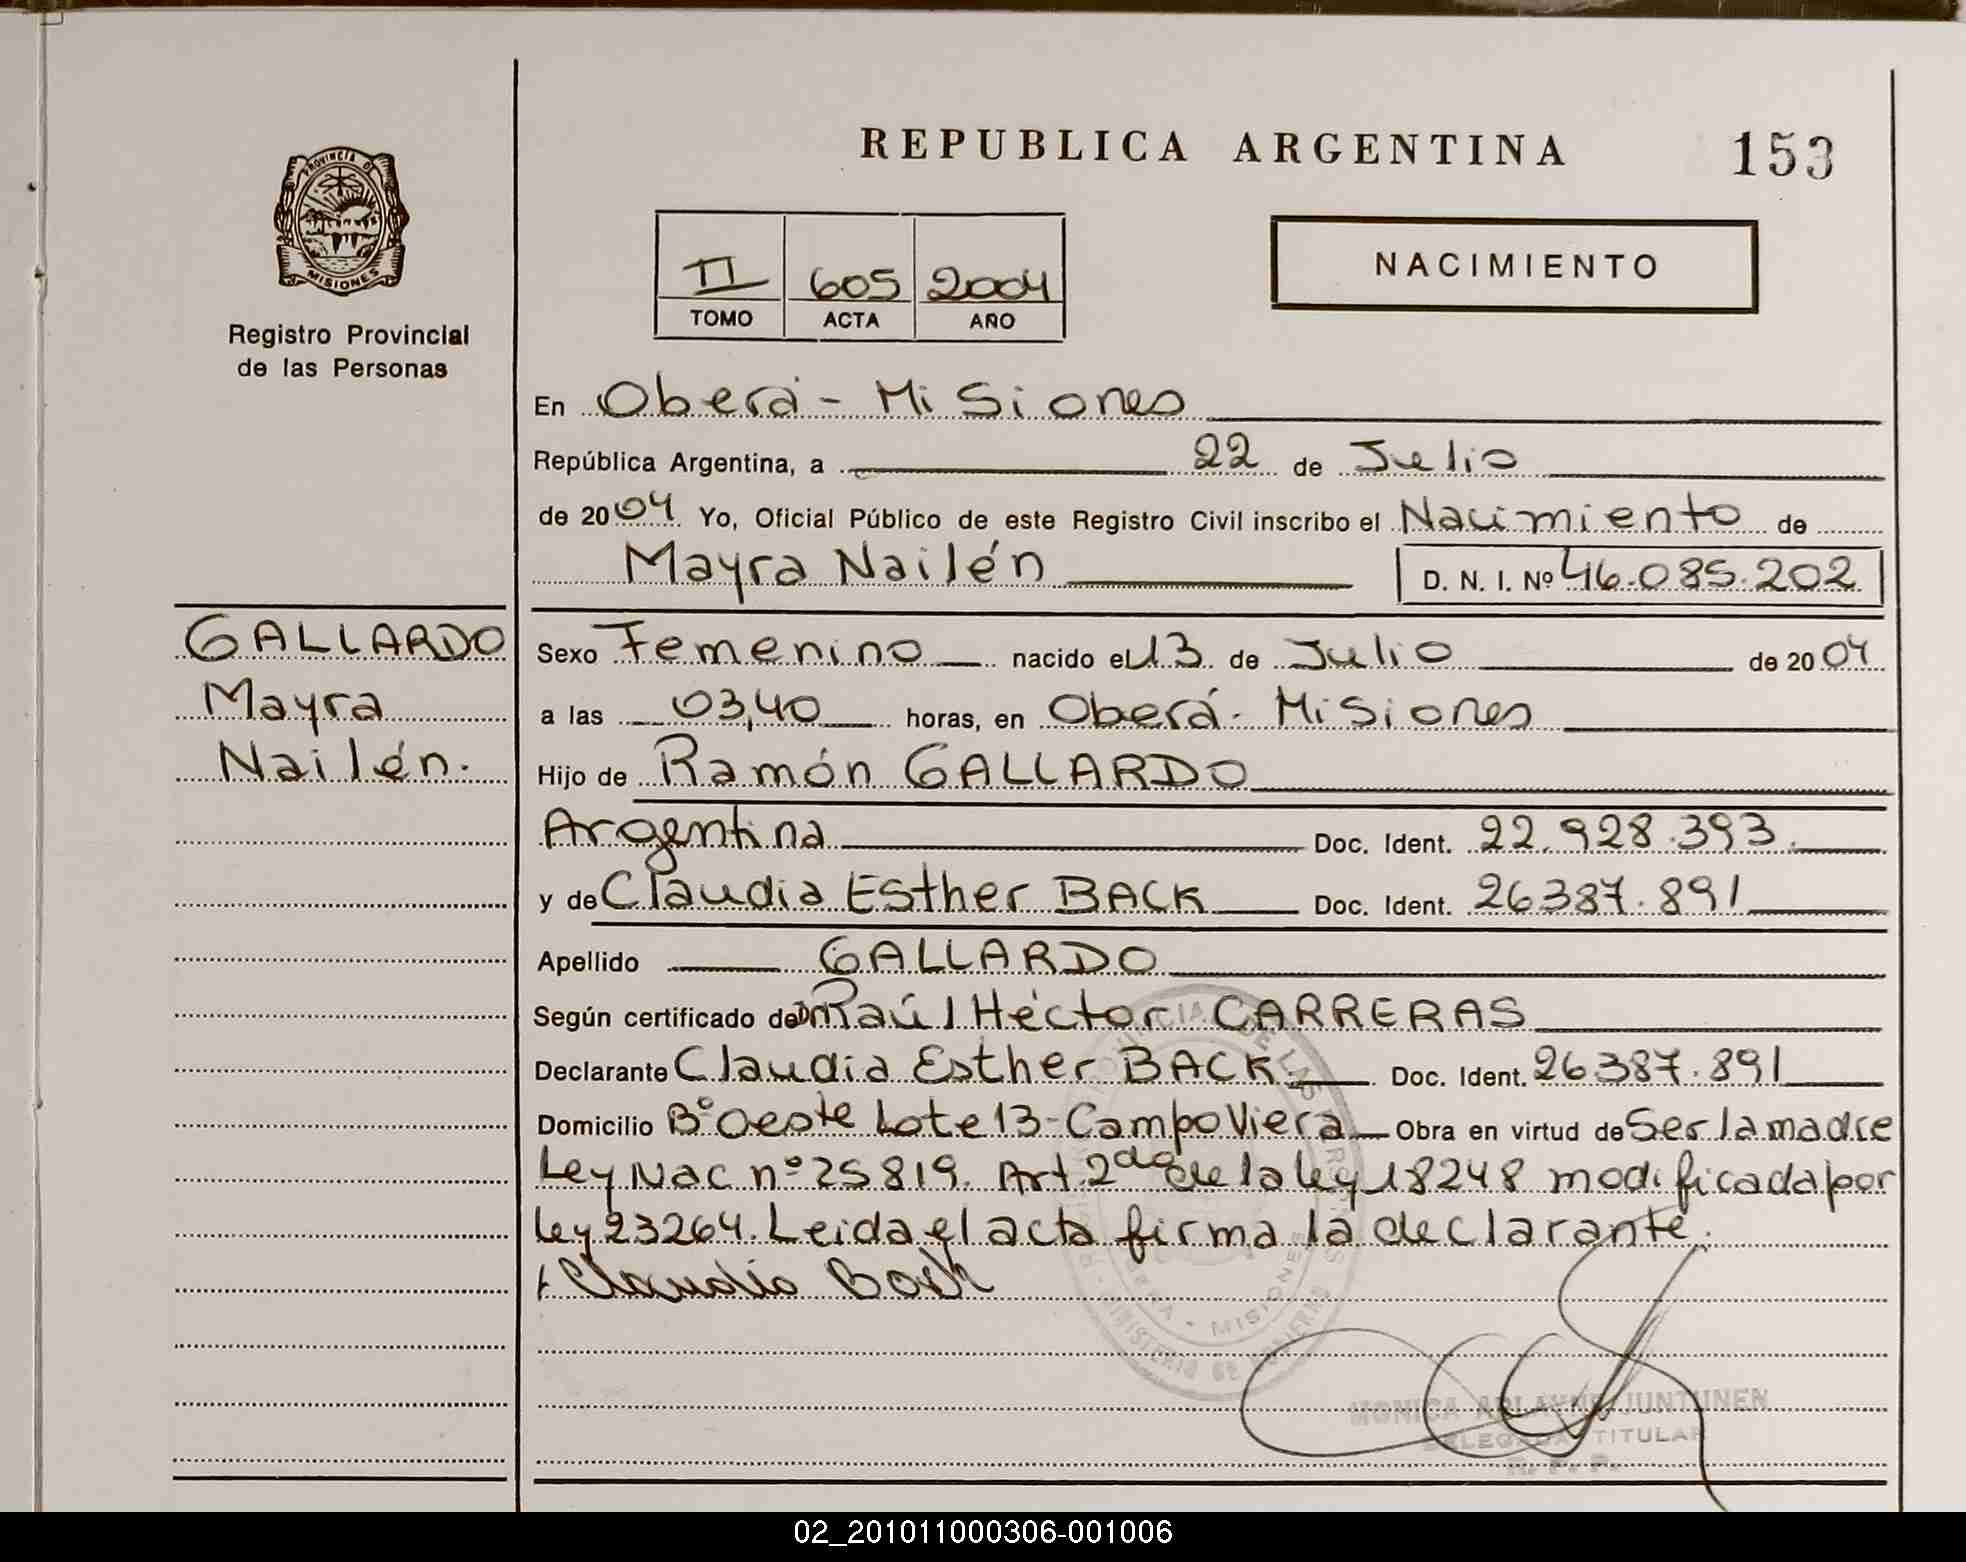 REPUBLICA ARGENTINA
153
PROVINCIA DE
MISIONES
Registro Provincial
de las Personas
II 605 2004
TOMO ACTA AÑO
NACIMIENTO
En Oberá - Misiones
República Argentina, a 22 de Julio
de 2004 Yo, Oficial Público de este Registro Civil inscribo el Nacimiento de
Mayra Nailén D. N. I. Nº 46.085.202
GALLARDO
Mayra
Nailén.
Sexo Femenino nacido el 13 de Julio de 2004
a las 03,40 horas, en Oberá - Misiones
Hijo de Ramón GALLARDO
Argentina Doc. Ident. 22.928.393.
y de Claudia Esther BACK Doc. Ident. 26387.891
Apellido GALLARDO
Según certificado de Dr Raúl Héctor CARRERAS
Declarante Claudia Esther BACK Doc. Ident. 26387.891
Domicilio Bº Oeste Lote 13 - Campo Viera Obra en virtud de Ser la madre
Ley Nac nº 25819. Art. 2do de la ley 18248 modificada por
ley 23264. Leida el acta firma la declarante.
Claudia Back
MINISTERIO DE GOBIERNO
OBERA - MISIONES
MONICA ADLAYNE JUNTUNEN
DELEGADA TITULAR
R. P. P.
02_201011000306-001006